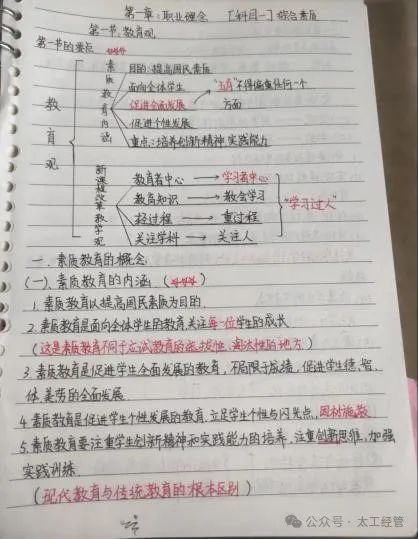 第一章：职业理念 [科目一] 综合素质
第一节：教育观
第一节的要点
教育观
素质教育内涵
目的：提高国民素质
面向全体学生
促进全面发展 → "五育"不得偏重任何一个方面
促进个性发展
重点：培养创新精神 实践能力
新课程改革教学观
教育者中心 → 学习者中心
教育知识 → 教会学习
轻过程 → 重过程
关注学科 → 关注人
"学习过人"
一、素质教育的概念：
(一)、素质教育的内涵
1.素质教育以提高国民素质为目的.
2.素质教育是面向全体学生的教育,关注每一位学生的成长
(这是素质教育不同于应试教育的选拔性、淘汰性的地方)
3.素质教育是促进学生全面发展的教育,不局限于成绩,促进学生德、智、
体、美、劳的全面发展
4.素质教育是促进学生个性发展的教育,立足学生个性与闪光点,因材施教
5.素质教育要注重学生创新精神和实践能力的培养,注重创新思维,加强
实践训练
(现代教育与传统教育的根本区别)
公众号 · 太工经管